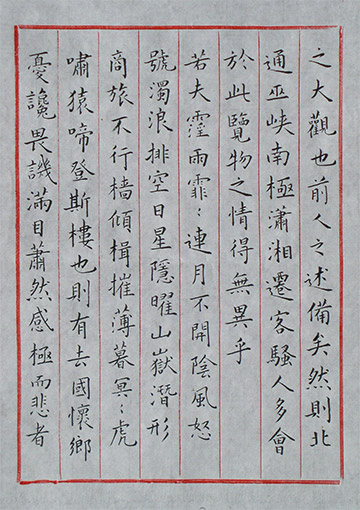 之大觀也前人之述備矣然則北
通巫峽南極瀟湘遷客騷人多會
於此覽物之情得無異乎
若夫霪雨霏〻連月不開陰風怒
號濁浪排空日星隱曜山嶽潛形
商旅不行檣傾楫摧薄暮冥〻虎
嘯猿啼登斯樓也則有去國懷鄉
憂讒畏譏滿目蕭然感極而悲者